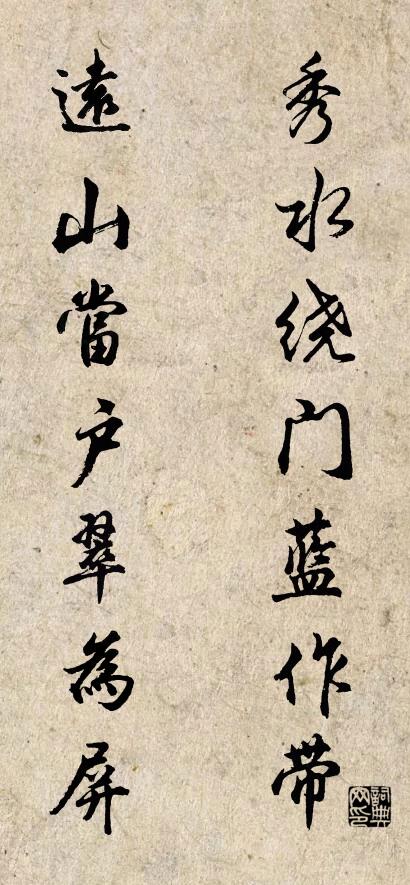 秀水绕门蓝作带
遠山當户翠為屏
詞典网印